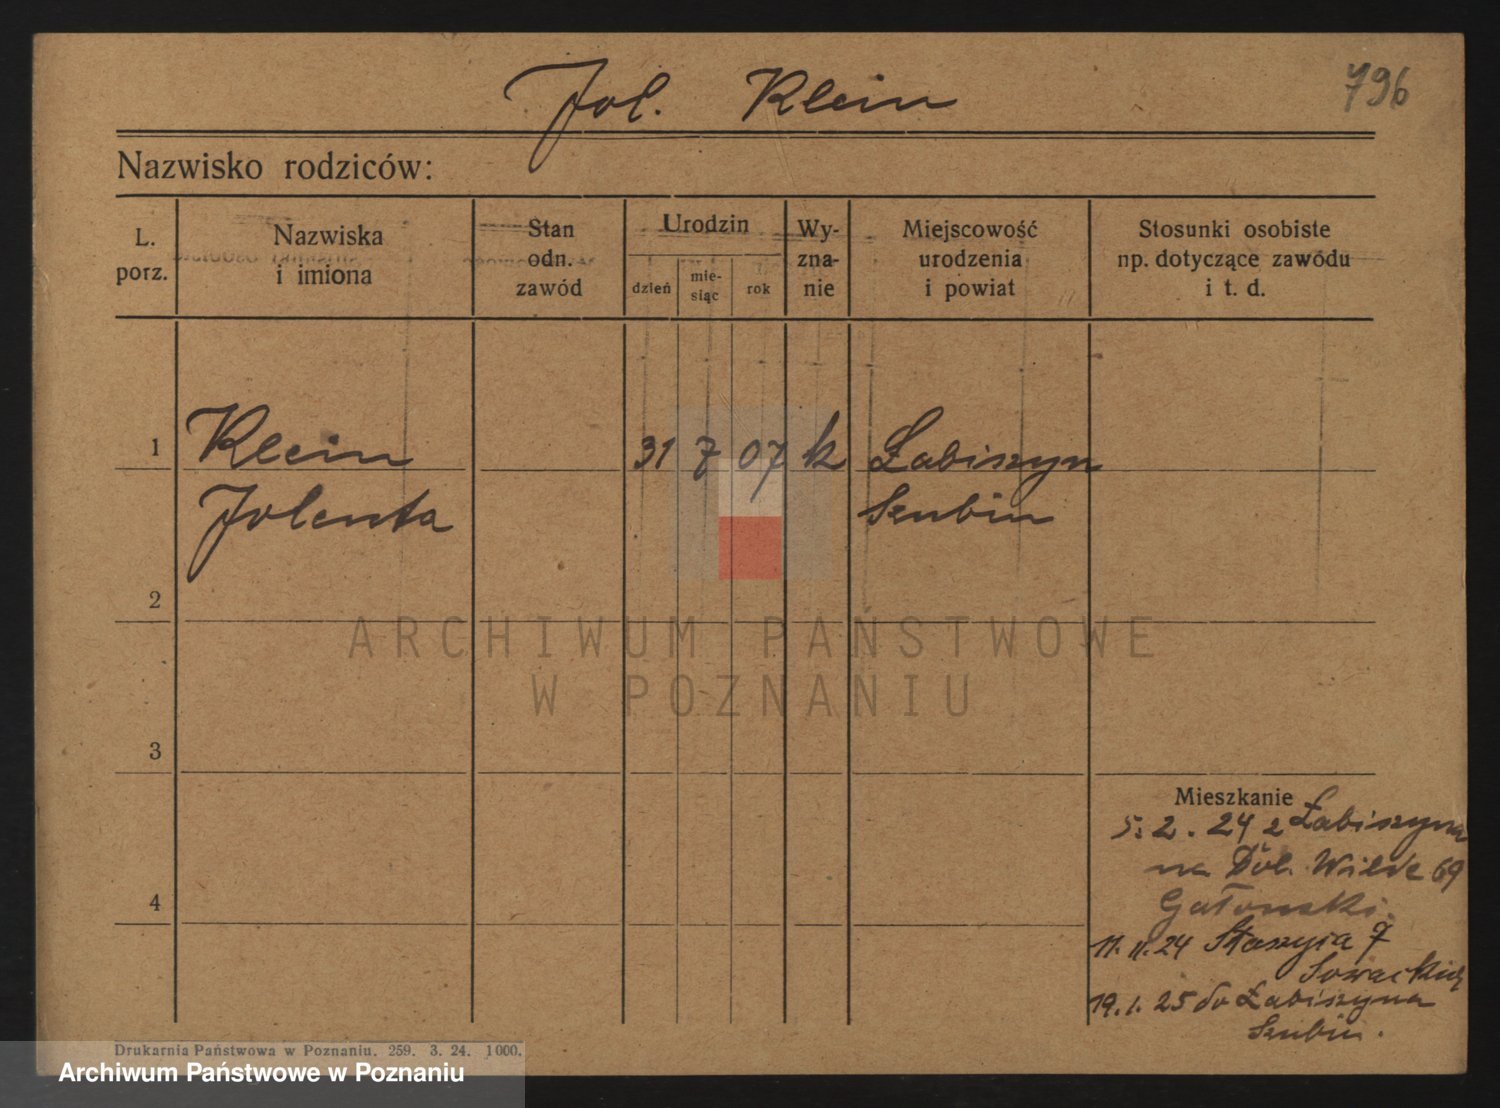 Jol. Klein
796
Nazwisko rodziców:
L. porz.
Nazwiska i imiona
Stan odn. zawód
Urodzin
dzień
mie-siąc
rok
Wy-zna-nie
Miejscowość urodzenia i powiat
Stosunki osobiste np. dotyczące zawodu i t. d.
1 Klein 31 7 07 k Łabiszyn
Jolenta Szubin
2
ARCHIWUM PAŃSTWOWE
W POZNANIU
3
Mieszkanie
5. 2. 24 z Łabiszyna
na Dol. Wilde 69
4
11. 11. 24 Staszyca 7
19. 1. 25 do Łabiszyna
Szubin.
Drukarnia Państwowa w Poznaniu. 259. 3. 24. 1000.
Archiwum Państwowe w Poznaniu